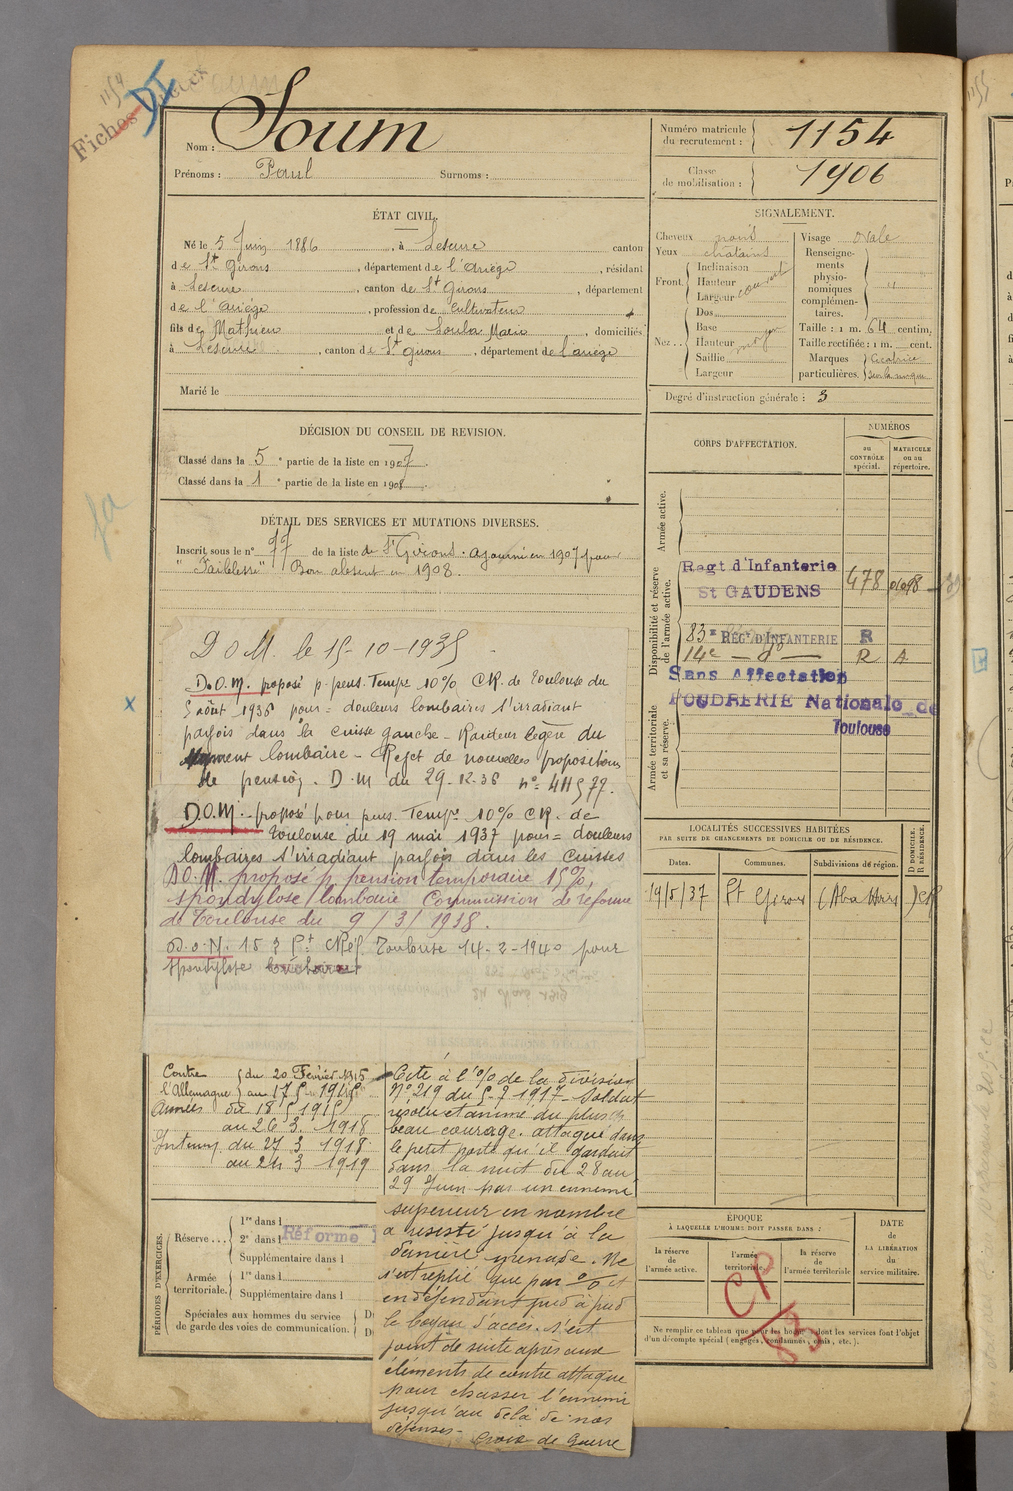 1154
Fiches
DI
Nom : Soum
Prénoms : Paul Surnoms :
Numéro matricule du recrutement : 1154
Classe de mobilisation : 1906
ÉTAT CIVIL.
Né le 5 Juin 1886, à Lescure canton
de St Girons, département de l'Ariège, résidant
à Lescure, canton de St Girons, département
de l'Ariège, profession de Cultivateur
fils de Mathieu et de Soula Marie, domiciliés
à Lescure, canton de St Girons, département de l'ariège
Marié le
SIGNALEMENT.
Cheveux noirs
Yeux chatains
Front. Inclinaison
Hauteur
Largeur
couvert
Nez.. Dos
Base
Hauteur
Saillie
Largeur
moyen
Visage ovale
Renseignements physionomiques complémentaires. "
Taille : 1 m. 64 centim.
Taille rectifiée : 1 m. cent.
Marques particulières. Cicatrice
sur la nuque
Degré d'instruction générale : 3
DÉCISION DU CONSEIL DE REVISION.
Classé dans la 5e partie de la liste en 1907.
Classé dans la 1e partie de la liste en 1908.
DÉTAIL DES SERVICES ET MUTATIONS DIVERSES.
Inscrit sous le n° 77 de la liste de St Girons. Ajourné en 1907 pour
"Faiblesse" Bon absent en 1908.
D O M. le 15-10-1935
D.O.M. proposé p. pens. Tempre 10% CR. de Toulouse du
5 août 1936 pour = douleurs lombaires s'irradiant
parfois dans la cuisse gauche - Raideur légère du
segment lombaire - Rejet de nouvelles propositions
de pension. D.M du 29-12-36 n° 411577.
D.O.M. proposé pour pens. Tempre 10% CR. de
Toulouse du 19 mai 1937 pour = douleurs
lombaires s'irradiant parfois dans les cuisses
D.O.M. proposé p. pension temporaire 15%,
spondylose lombaire Commission de réforme
de Toulouse du 9/3/1938.
D.O.M. 15 % Pt CRéf. Toulouse 14-2-1940 pour
spondylose
Contre l'Allemagne du 20 Février 1915
au 17 5 1915
Armées du 18 5 1915
au 26 3. 1918
Intérieur du 27 3 1918
au 24 3 1919
Cité à l'% de la division
N° 219 du 5-7 1917 - Soldat
résolu et animé du plus
beau courage. attaqué dans
le petit poste qu'il gardait
dans la nuit du 28 au
29 Juin par un ennemi
supérieur en nombre
a résisté jusqu'à la
dernière grenade. Ne
s'est replié que par % et
en défendant pied à pied
le boyau d'accès. s'est
joint de suite après aux
éléments de contre attaque
pour chasser l'ennemi
jusqu'au delà de nos
défenses - Croix de Guerre
CORPS D'AFFECTATION.
NUMÉROS
au CONTRÔLE spécial.
MATRICULE ou au répertoire.
Armée active.
Disponibilité et réserve de l'armée active.
Armée territoriale et sa réserve.
Regt d'Infanterie
St GAUDENS
478
83e REG. D'INFANTERIE R
14e — do — R A
Sans Affectation
POUDRERIE Nationale de
Toulouse
LOCALITÉS SUCCESSIVES HABITÉES
PAR SUITE DE CHANGEMENTS DE DOMICILE OU DE RÉSIDENCE.
Dates. Communes. Subdivisions de région. D DOMICILE. R RÉSIDENCE.
19/5/37 St Girons
PÉRIODES D'EXERCICES.
Réserve... 1re dans l
2e dans l Réforme
Supplémentaire dans l
Armée territoriale. 1re dans l
Supplémentaire dans l
Spéciales aux hommes du service
de garde des voies de communication.
ÉPOQUE
À LAQUELLE L'HOMME DOIT PASSER DANS :
la réserve de l'armée active.
l'armée territoriale.
la réserve de l'armée territoriale
DATE DE LA LIBÉRATION du service militaire.
Ne remplir ce tableau que pour les hommes dont les services font l'objet
d'un décompte spécial (engagés, condamnés, omis, etc.).